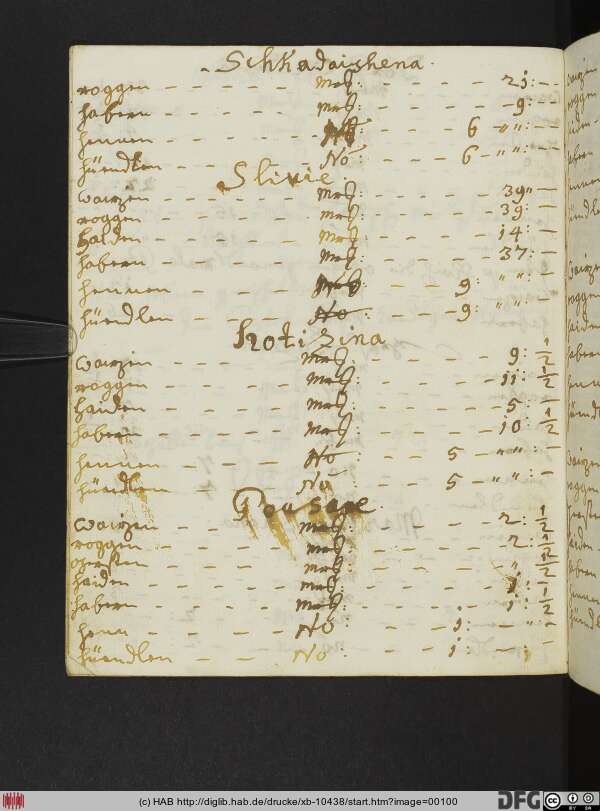 Schkadaishena.
roggen — — — — — maß: — — — — 21: —
habern — — — — — maß: — — — — 9: —
hennen — — — — — No: — — — 6 — " ": —
hüendlen — — — — No: — — — 6 — " ": —
Slivie.
waizen — — — — — maß: — — — — 39" —
roggen — — — — — maß: — — — — 39: —
haiden — — — — — maß: — — — — 14: —
habern — — — — — maß: — — — — 37: —
hennen — — — — — — — — 9: " ": —
hüendlen — — — — No — — — — 9: " ": —
Kotizina
waizin — — — — — maß: — — — — 9: 1/2
roggen — — — — — maß: — — — — 11: 1/2
haiden — — — — — maß: — — — — 5: —
habern — — — — — maß: — — — — 10: 1/2
hennen — — — — — No — — — 5 — " ": —
hüendlen — — — — No — — — 5 — " ": —
Gousere
waizen — — — — — maß: — — — — 2: 1/2
roggen — — — — — maß: — — — — 2: 1/2
gersten — — — — — maß: — — — — " 1/2
haiden — — — — — maß: — — — — 1: 1/2
habern — — — — — maß: — — — — 1: 1/2
henn — — — — — No — — — 1: — — " —
hüendlen — — — — No: — — — 1: — — ;
(c) HAB http://diglib.hab.de/drucke/xb-10438/start.htm?image=00100
DFG
CC BY SA